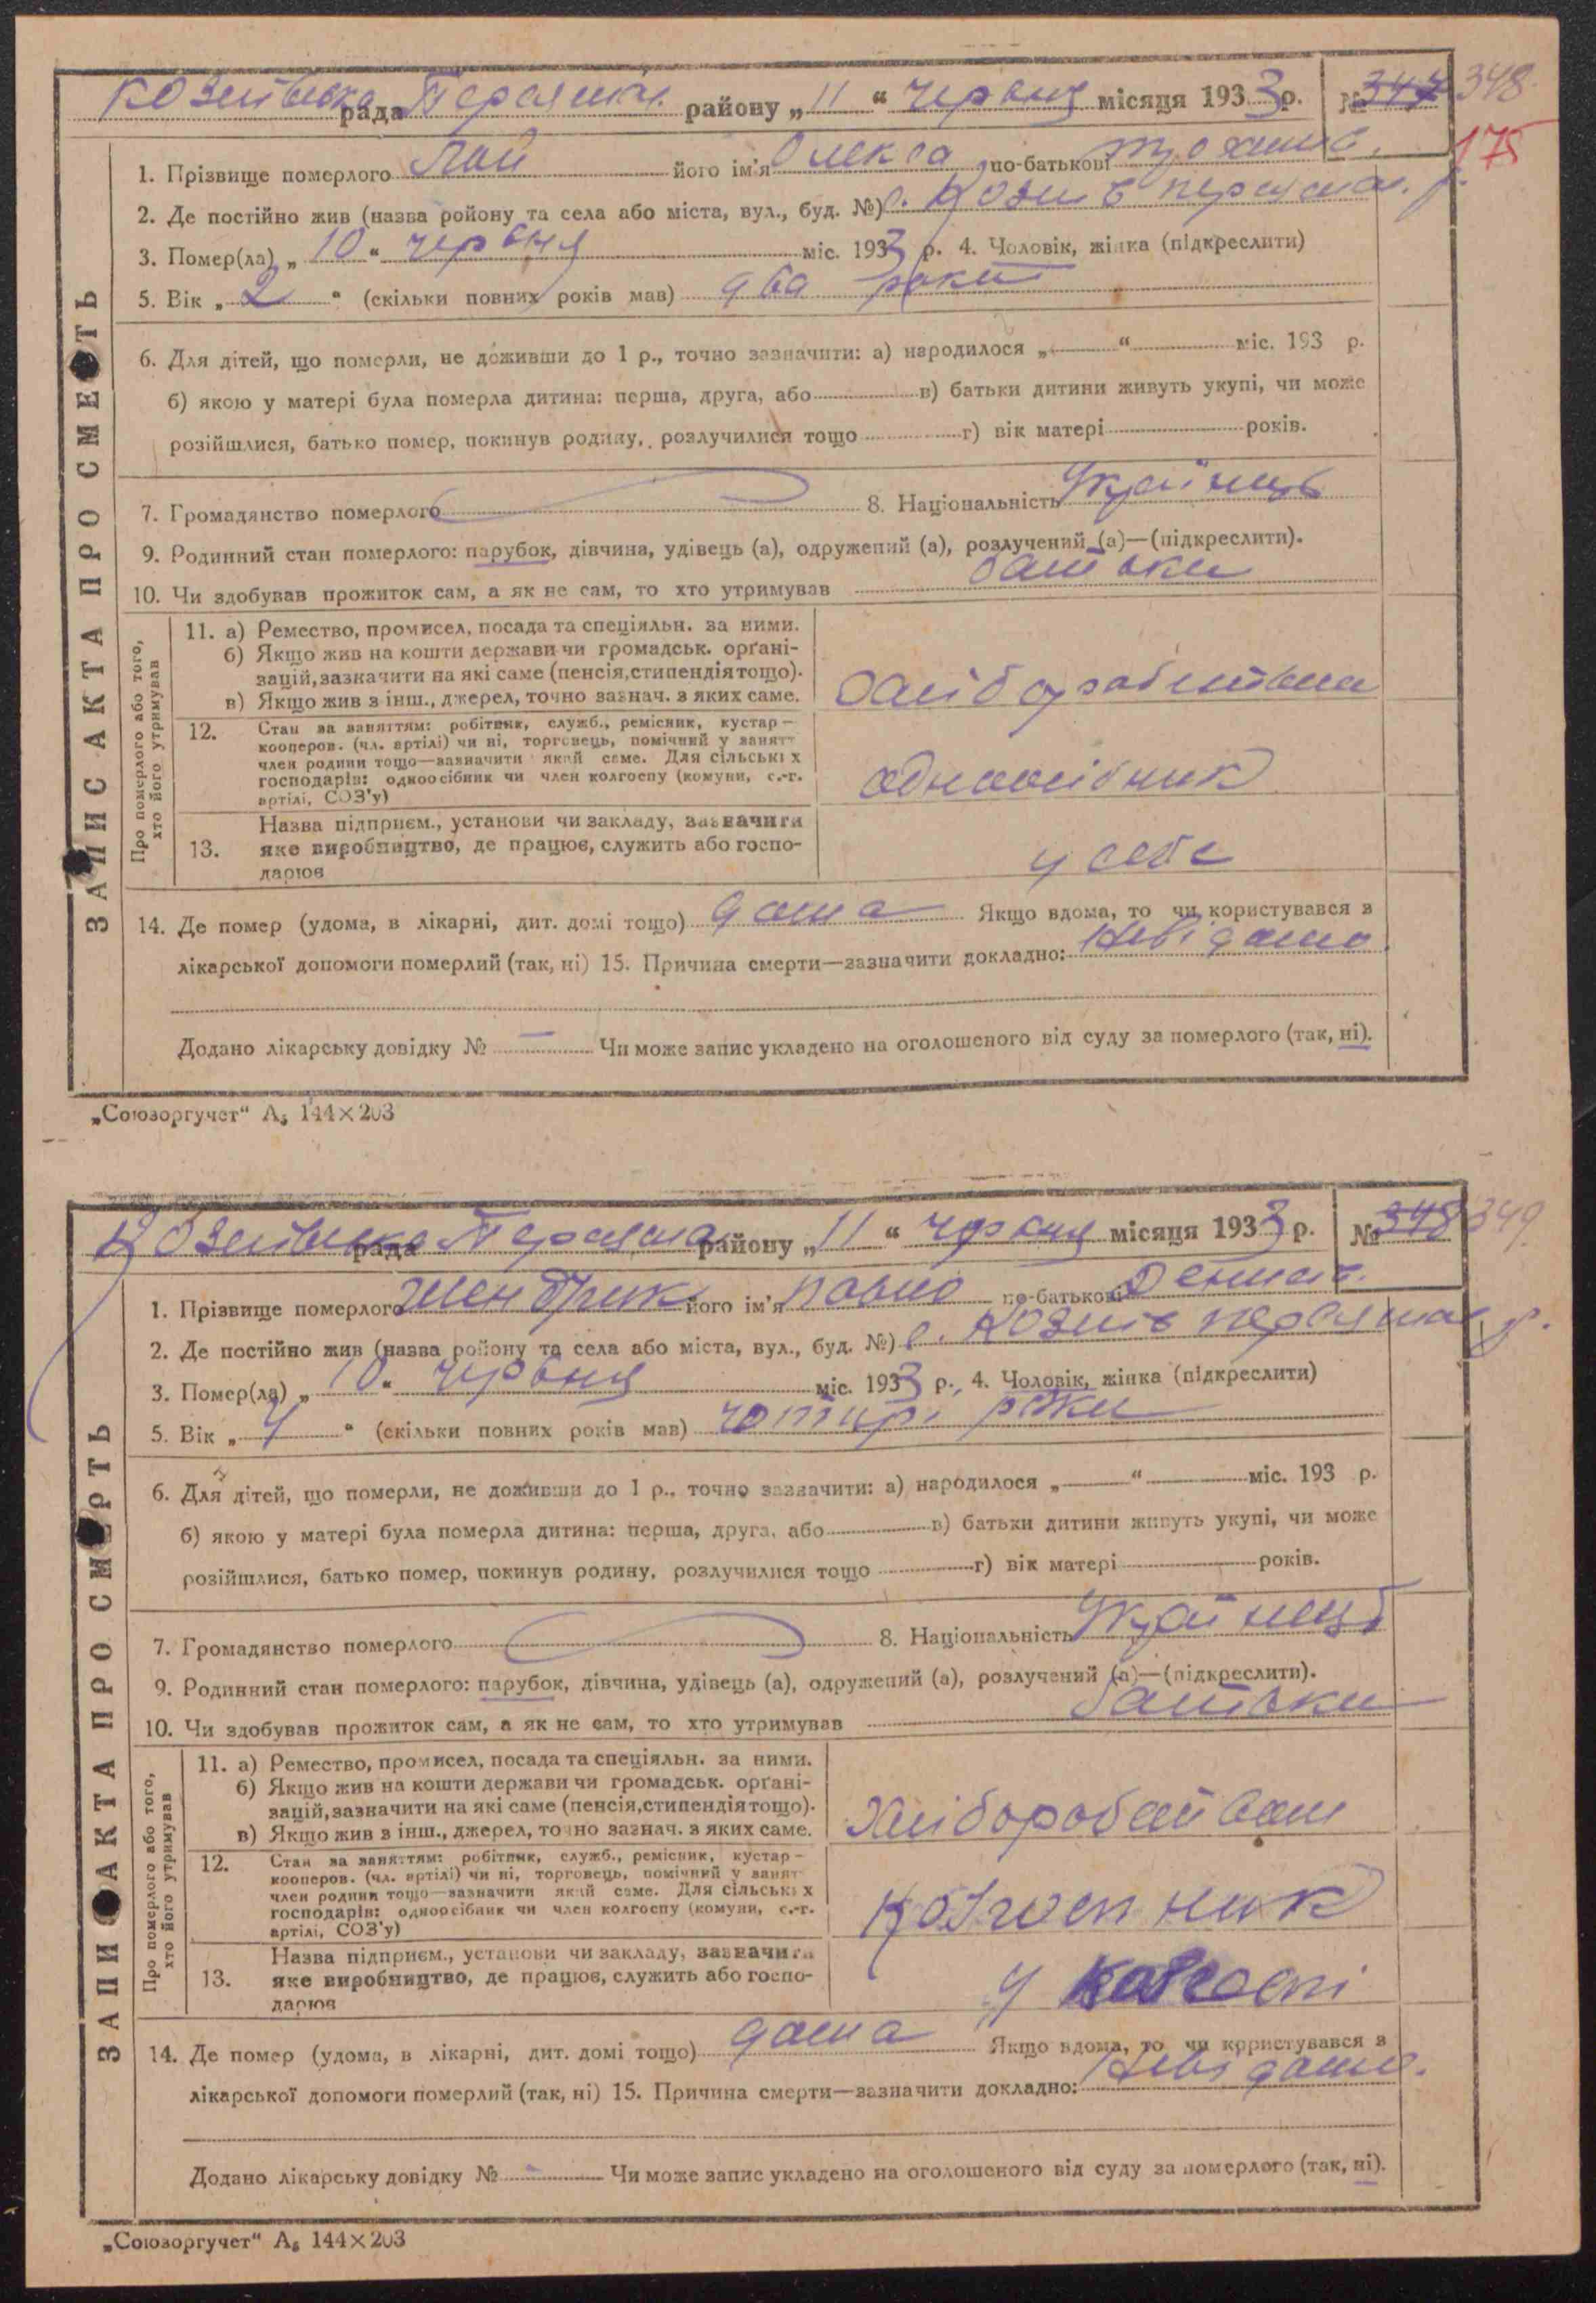 Козиївська рада Переяслів. району „11“ червня місяця 1933 р. № 347 348
175
1. Прізвище померлого Лай його ім'я Олекса по-батькові Трохимов.
2. Де постійно жив (назва ройону та села або міста, вул., буд. №) с. Козиїв переяслав. р.
3. Помер(ла) „10“ червня міс. 1933 р. 4. Чоловік, жінка (підкреслити)
5. Вік „2“ (скільки повних років мав) два роки
6. Для дітей, що померли, не доживши до 1 р., точно зазначити: а) народилося „ “ міс. 193 р.
б) якою у матері була померла дитина: перша, друга, або в) батьки дитини живуть укупі, чи може
розійшлися, батько помер, покинув родину, розлучилися тощо г) вік матері років.
7. Громадянство померлого 8. Національність Українець
9. Родинний стан померлого: парубок, дівчина, удівець (а), одружений (а), розлучений (а)—(підкреслити).
10. Чи здобував прожиток сам, а як не сам, то хто утримував батьки
Про померлого або того, хто його утримував
11. а) Ремество, промисел, посада та спеціяльн. за ними.
б) Якщо жив на кошти держави чи громадськ. орґані-
зацій, зазначити на які саме (пенсія, стипендія тощо).
в) Якщо жив з інш., джерел, точно зазнач. з яких саме.
12. Стан за заняттям: робітник, служб., ремісник, кустар—
кооперов. (чл. артілі) чи ні, торговець, помічний у занятт
член родини тощо—зазначити який саме. Для сільських
господарів: одноосібник чи член колгоспу (комуни, с.-г.
артілі, СОЗ'у)
одноосібник
13. Назва підприєм., установи чи закладу, зазначити
яке виробництво, де працює, служить або госпо-
дарює
у себе
14. Де помер (удома, в лікарні, дит. домі тощо) дома Якщо вдома, то чи користувався з
лікарської допомоги померлий (так, ні) 15. Причина смерти—зазначити докладно: Невідомо.
Додано лікарську довідку № — Чи може запис укладено на оголошеного від суду за померлого (так, ні).
ЗАПИС АКТА ПРО СМЕРТЬ
„Союзоргучет“ А₅ 144×203
Козиївська рада Переяслав району „11“ червня місяця 1933 р. № 348 349
1. Прізвище померлого його ім'я Павло по-батькові Денисов.
2. Де постійно жив (назва ройону та села або міста, вул., буд. №) с. Козиїв переяслав р.
3. Помер(ла) „10“ червня міс. 1933 р., 4. Чоловік, жінка (підкреслити)
5. Вік „4“ (скільки повних років мав) чотирі роки
6. Для дітей, що померли, не доживши до 1 р., точно зазначити: а) народилося „ “ міс. 193 р.
б) якою у матері була померла дитина: перша, друга, або в) батьки дитини живуть укупі, чи може
розійшлися, батько помер, покинув родину, розлучилися тощо г) вік матері років.
7. Громадянство померлого 8. Національність Українець
9. Родинний стан померлого: парубок, дівчина, удівець (а), одружений (а), розлучений (а)—(підкреслити).
10. Чи здобував прожиток сам, а як не сам, то хто утримував батьки
Про померлого або того, хто його утримував
11. а) Ремество, промисел, посада та спеціяльн. за ними.
б) Якщо жив на кошти держави чи громадськ. орґані-
зацій, зазначити на які саме (пенсія, стипендія тощо).
в) Якщо жив з інш., джерел, точно зазнач. з яких саме.
12. Стан за заняттям: робітник, служб., ремісник, кустар—
кооперов. (чл. артілі) чи ні, торговець, помічний у занят
член родини тощо—зазначити який саме. Для сільських
господарів: одноосібник чи член колгоспу (комуни, с.-г.
артілі, СОЗ'у)
Колгоспник
13. Назва підприєм., установи чи закладу, зазначити
яке виробництво, де працює, служить або госпо-
дарює
у колгоспі
14. Де помер (удома, в лікарні, дит. домі тощо) дома Якщо вдома, то чи користувався з
лікарської допомоги померлий (так, ні) 15. Причина смерти—зазначити докладно: Невідомо.
Додано лікарську довідку № — Чи може запис укладено на оголошеного від суду за померлого (так, ні).
ЗАПИС АКТА ПРО СМЕРТЬ
„Союзоргучет“ А₅ 144×203